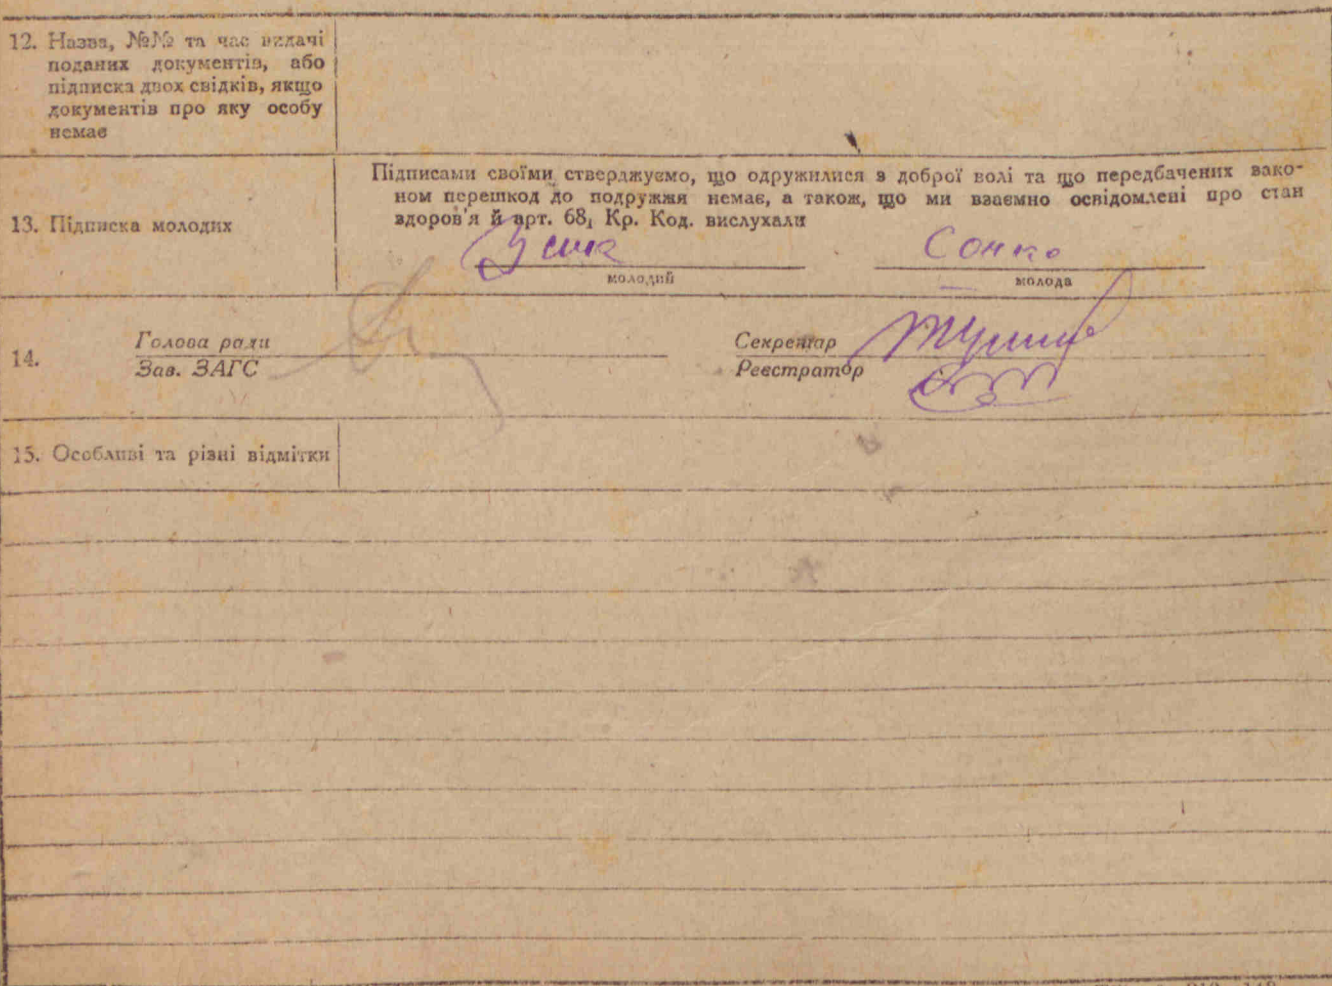 12. Назва, №№ та час видачі
поданих документів, або
підписка двох свідків, якщо
документів про яку особу
немає
Підписами своїми стверджуємо, що одружилися з доброї волі та що передбачених зако-
ном перешкод до подружжя немає, а також, що ми взаємно освідомлені про стан
здоров'я й арт. 68, Кр. Код. вислухали
13. Підписка молодих
Сонко
молодий
молода
14.
Голова ради
Зав. ЗАГС
Секретар
Реєстратор
15. Особливі та різні відмітки